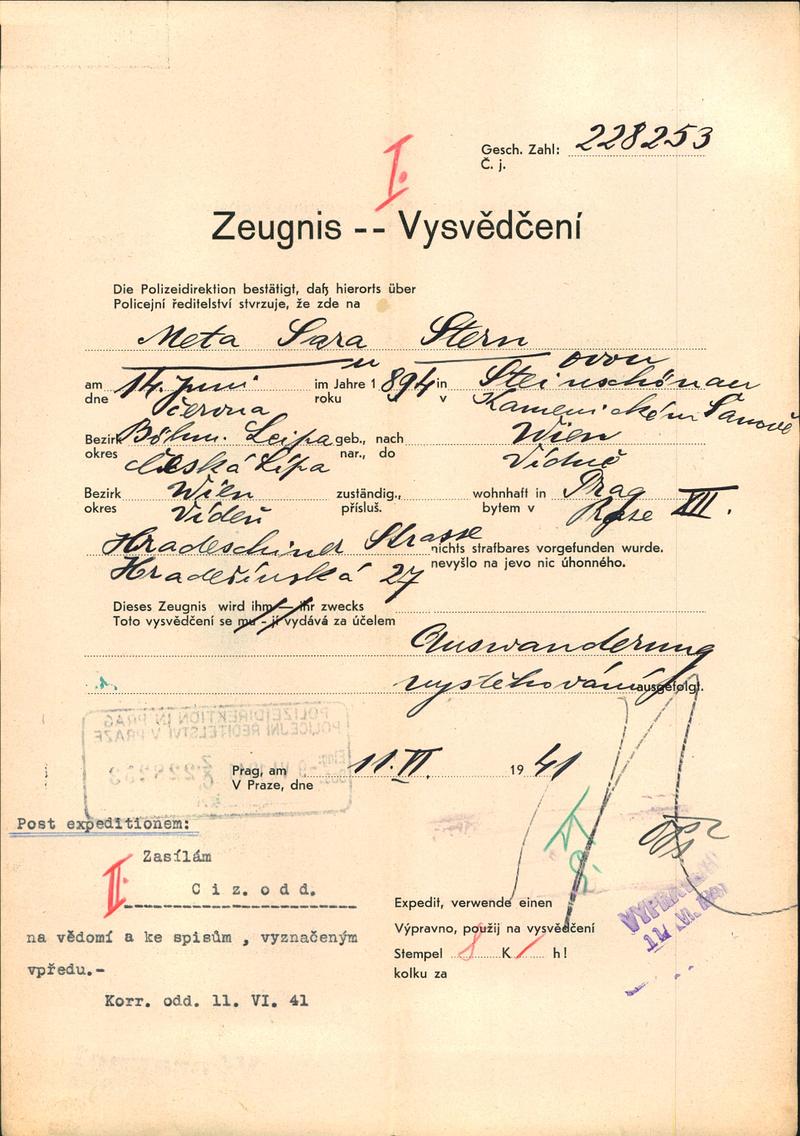 Gesch. Zahl: 228253
Č. j.
I.
Zeugnis -- Vysvědčení
Die Polizeidirektion bestätigt, daß hierorts über
Policejní ředitelství stvrzuje, že zde na
Meta Sara Stern
ovou
am 14. Juni im Jahre 1894 in Steinschönau
dne června roku v Kamenickém Šanově
Bezirk Böhm. Leipa geb., nach Wien
okres Česká Lípa nar., do Vídně
Bezirk Wien zuständig., wohnhaft in Prag
okres Vídeň přísluš. bytem v Praze XII.
Hradeschiner Strasse nichts strafbares vorgefunden wurde.
Hradešínská 27 nevyšlo na jevo nic úhonného.
Dieses Zeugnis wird ihm — ihr zwecks
Toto vysvědčení se mu - jí vydává za účelem
Auswanderung
vystěhování ausgefolgt.
POLIZEIDIREKTION IN PRAG
POLICEJNÍ ŘEDITELSTVÍ V PRAZE
Prag, am 11. VI. 1941
V Praze, dne
Post expeditionem:
Zasílám
II.
Ciz. odd.
na vědomí a ke spisům , vyznačeným
vpředu.-
Korr. odd. 11. VI. 41
Expedit, verwende einen
Výpravno, použij na vysvědčení
Stempel 8 K h!
kolku za